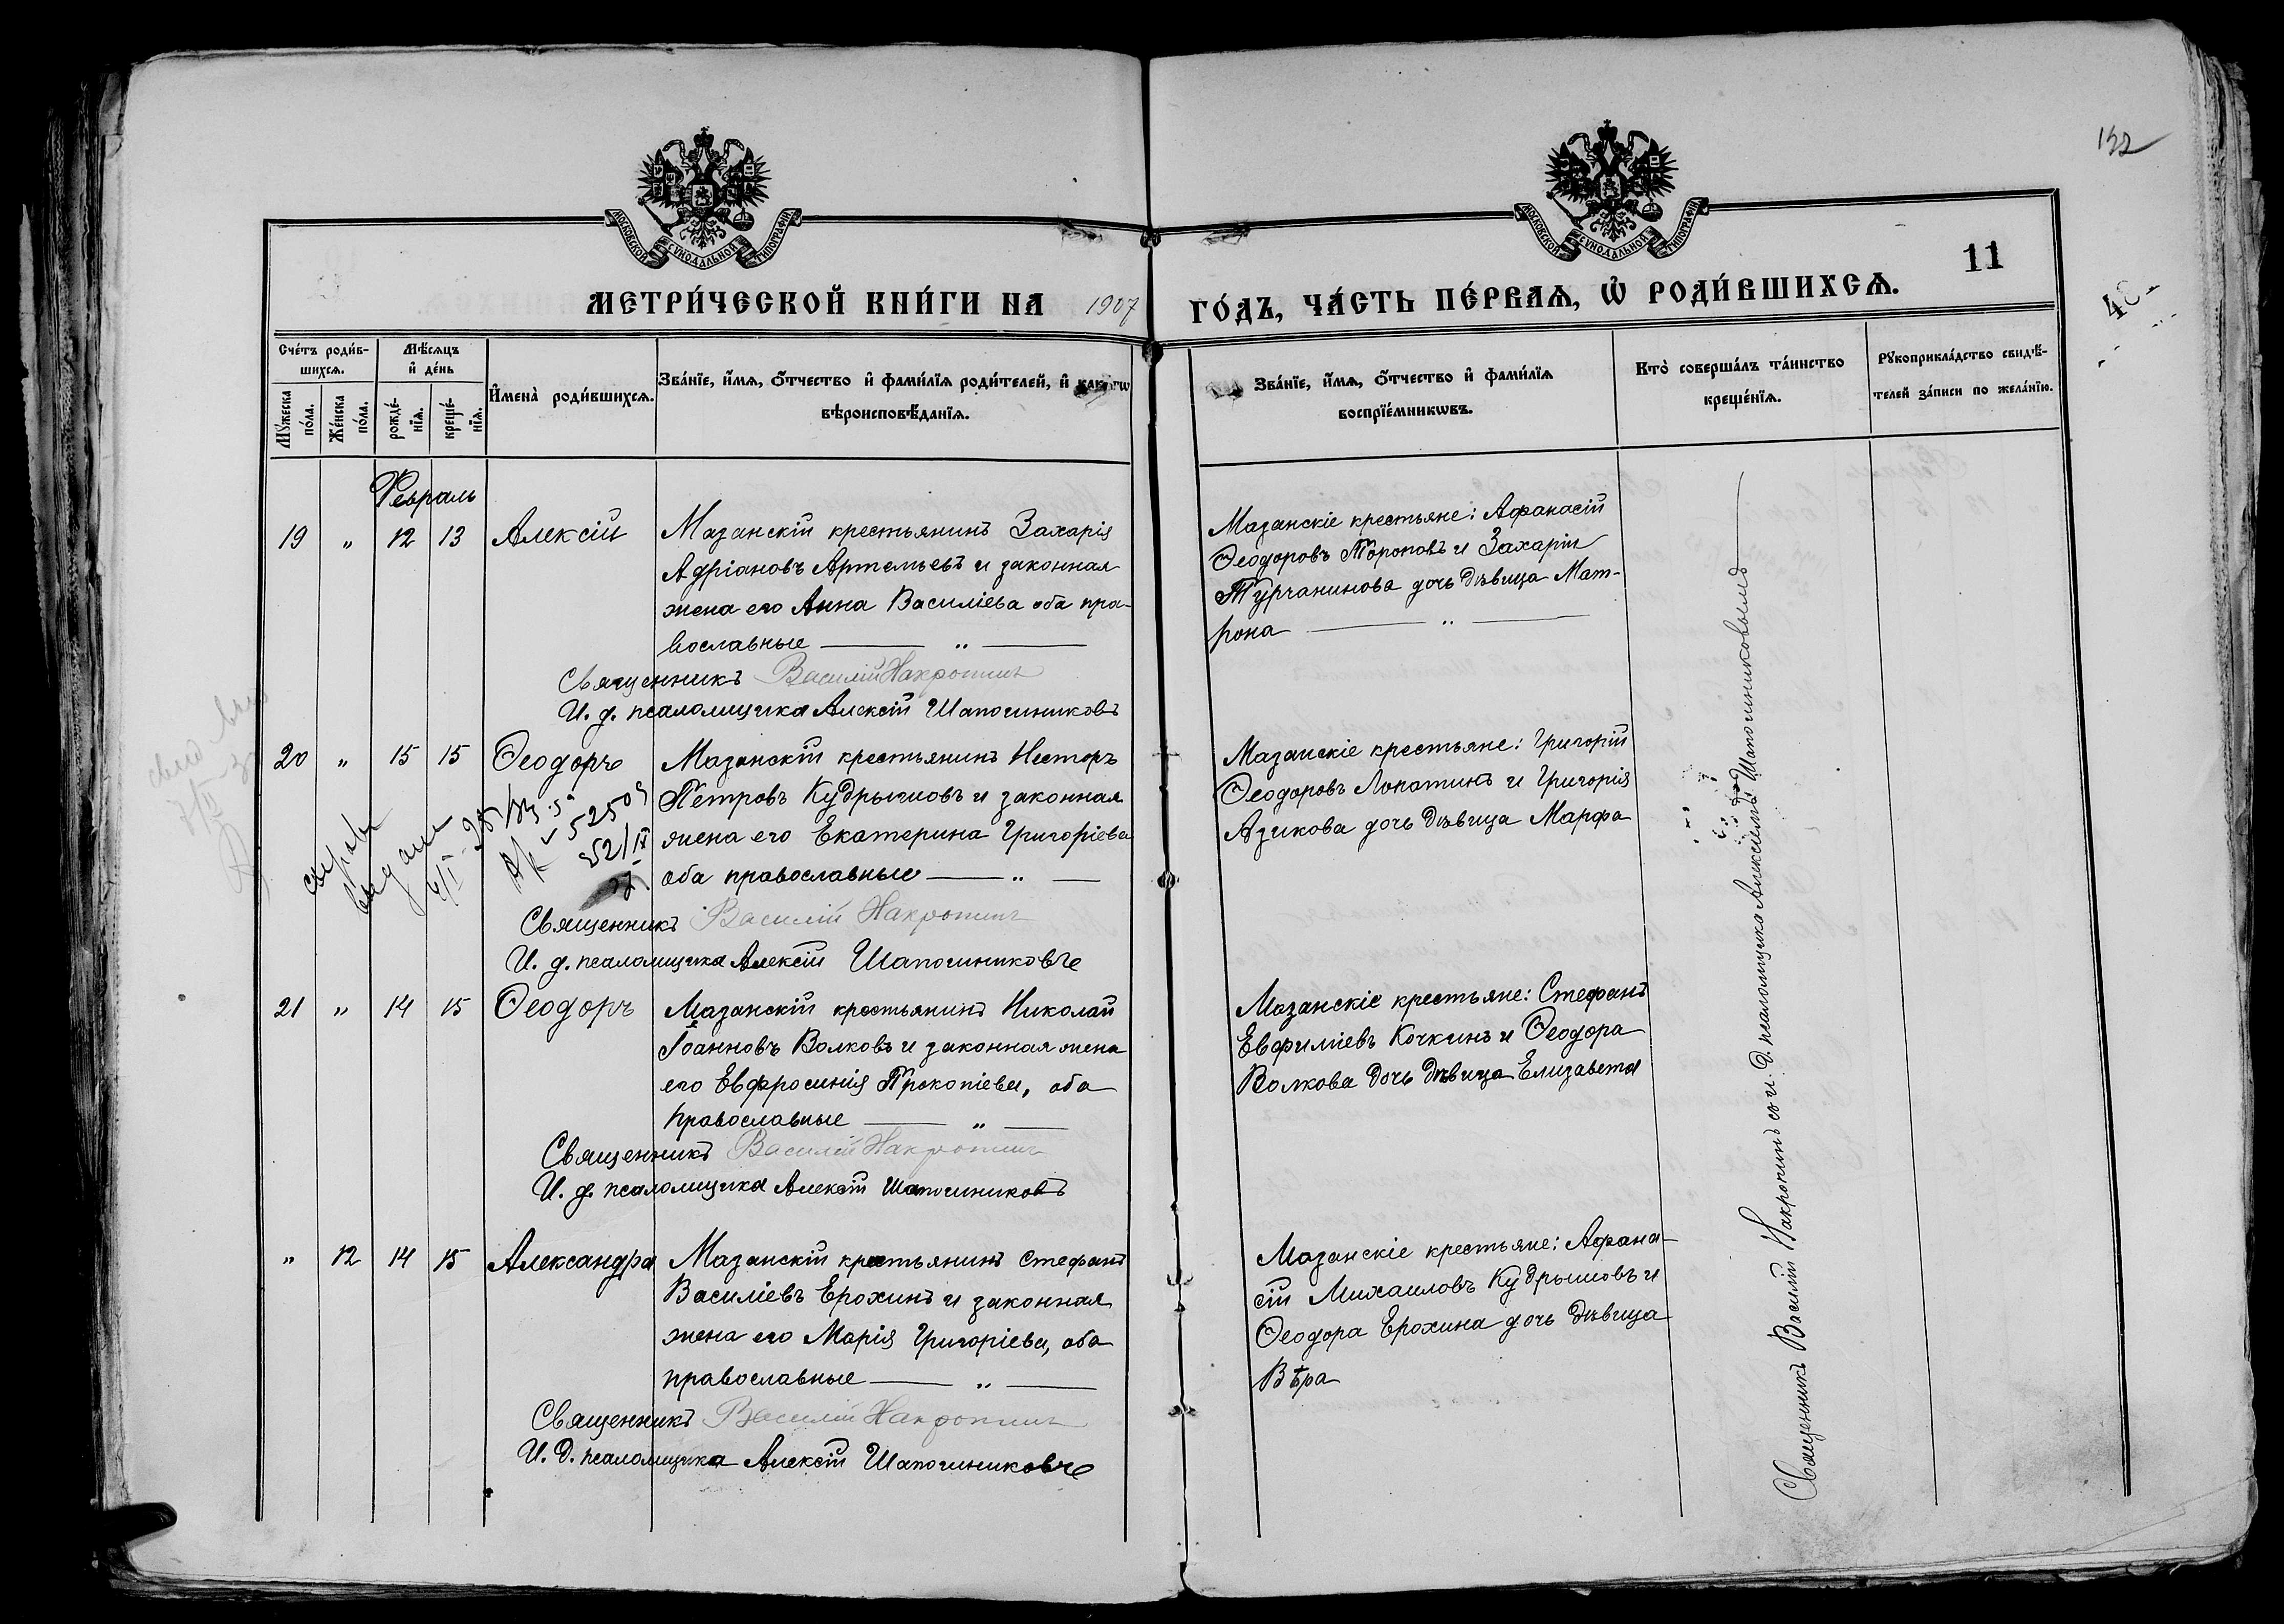 122
МОСКОВСКОЙ СѴНОДАЛЬНОЙ ТИПОГРАФІИ
МОСКОВСКОЙ СѴНОДАЛЬНОЙ ТИПОГРАФІИ
11
МЕТРИ́ЧЕСКОЙ КНИ́ГИ НА 1907 ГО́ДЪ, ЧА́СТЬ ПЕ́РВАѦ, Ѡ҆ РОДИ́ВШИХСѦ.
Сче́тъ роди́в-
шихсѧ.
Мѣ́сѧцъ
и҆ де́нь
Мꙋ́жеска
по́ла.
Же́нска
по́ла.
рожде́-
нїѧ.
креще́-
нїѧ.
И҆мена̀ роди́вшихсѧ.
Зва́нїе, и҆́мѧ, ѻ҆́тчество и҆ фами́лїѧ роди́телей, и҆ какогѡ
вѣроисповѣ́данїѧ.
Зва́нїе, и҆́мѧ, ѻ҆́тчество и҆ фами́лїѧ
воспрїе́мникѡвъ.
Кто̀ соверша́лъ та́инство
креще́нїѧ.
Рꙋкоприкла́дство свидѣ́-
телей за́писи по жела́нїю.
Февраль
19 " 12 13 Алексій
Мазанскій крестьянинъ Захарія
Адріановъ Артемьевъ и законная
жена его Анна Василіева оба пра-
вославные — " —
Священникъ Василій Накропинъ
И. д. псаломщика Алексій Шапошниковъ
Мазанскіе крестьяне: Афанасій
Ѳеодоровъ Тороповъ и Захарія
Турчанинова дочь дѣвица Мат-
рона — " —
20 " 15 15 Ѳеодоръ
Мазанскій крестьянинъ Несторъ
Петровъ Кудрышовъ и законная
жена его Екатерина Григоріева
оба православные — " —
Священникъ Василій Накропинъ
И. д. псаломщика Алексій Шапошниковъ
Мазанскіе крестьяне: Григорій
Ѳеодоровъ Лопатинъ и Григорія
Азикова дочь дѣвица Марфа
21 " 14 15 Ѳеодоръ
Мазанскій крестьянинъ Николай
Іоанновъ Волковъ и законная жена
его Евфросинія Прокопіева, оба
православные — " —
Священникъ Василій Накропинъ
И. д. псаломщика Алексій Шапошниковъ
Мазанскіе крестьяне: Стефанъ
Евфиміевъ Кочкинъ и Ѳеодора
Волкова дочь дѣвица Елизавета
" 12 14 15 Александра
Мазанскій крестьянинъ Стефанъ
Василіевъ Ерохинъ и законная
жена его Марія Григоріева, оба
православные — " —
Священникъ Василій Накропинъ
И. д. псаломщика Алексій Шапошниковъ
Мазанскіе крестьяне: Афана-
сій Михаиловъ Кудрышовъ и
Ѳеодора Ерохина дочь дѣвица
Вѣра
Священникъ Василій Накропинъ съ и. д. псаломщика Алексіемъ Шапошниковымъ